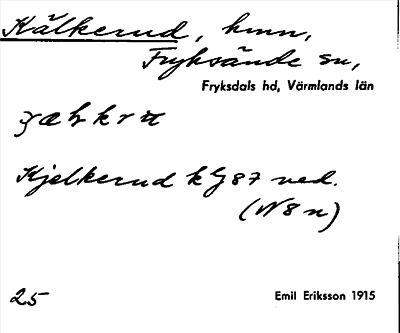 Kälkerud, hmn,
Fryksände sn,
Fryksdals hd, Värmlands län
Kjelkerud kG 87 ved.
(N8n)
25
Emil Eriksson 1915